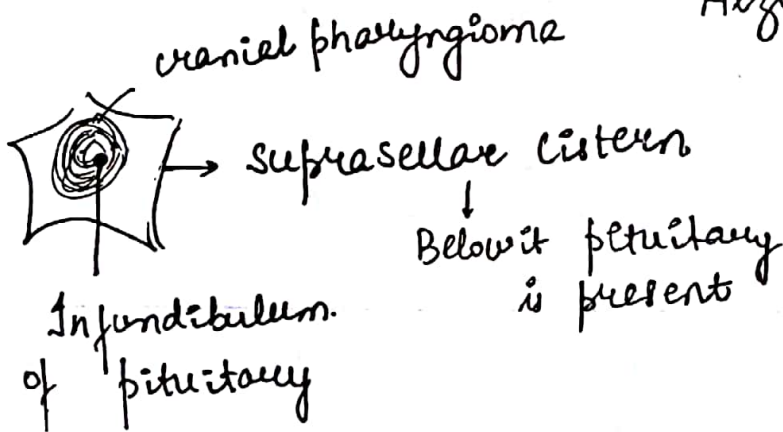 cranial pharyngioma
suprasellar cistern
Below it pituitary
is present
Infundibulum.
of pituitary